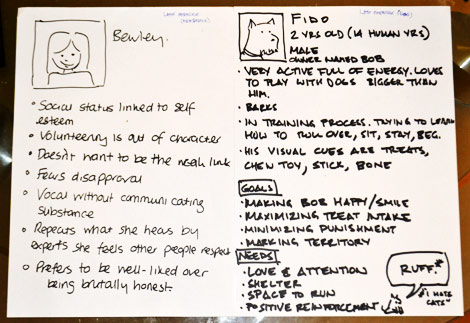 Bewley.
• Social status linked to self
esteem
• Volunteering is out of character
• Doesn't want to be the weak link
• Fears disapproval
• Vocal without communicating
substance
• Repeats what she hears by
experts she feels other people respect
• Prefers to be well-liked over
being brutally honest.
FIDO
2 YRS OLD (14 HUMAN YRS)
MALE
OWNER NAMED BOB
• VERY ACTIVE FULL OF ENERGY. LOVES
TO PLAY WITH DOGS BIGGER THAN
HIM.
• BARKS
• IN TRAINING PROCESS. TRYING TO LEARN
HOW TO ROLL OVER, SIT, STAY, BEG.
• HIS VISUAL CUES ARE TREATS,
CHEW TOY, STICK, BONE
GOALS
• MAKING BOB HAPPY/SMILE
• MAXIMIZING TREAT INTAKE
• MINIMIZING PUNISHMENT
• MARKING TERRITORY
NEEDS
• LOVE & ATTENTION
• SHELTER
• SPACE TO RUN
• POSITIVE REINFORCEMENT
RUFF.*
*I HATE
CATS"